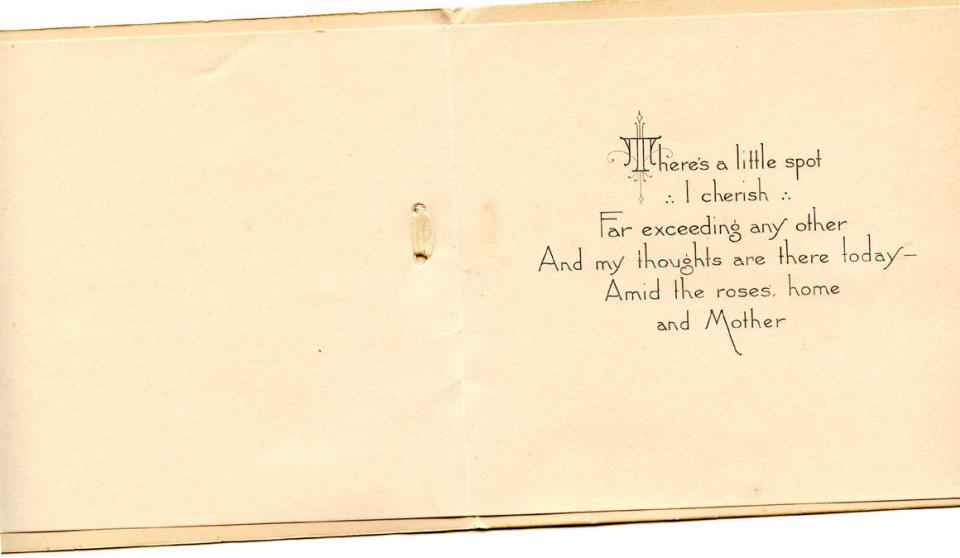 There's a little spot
∴ I cherish ∴
Far exceeding any other
And my thoughts are there today—
Amid the roses, home
and Mother